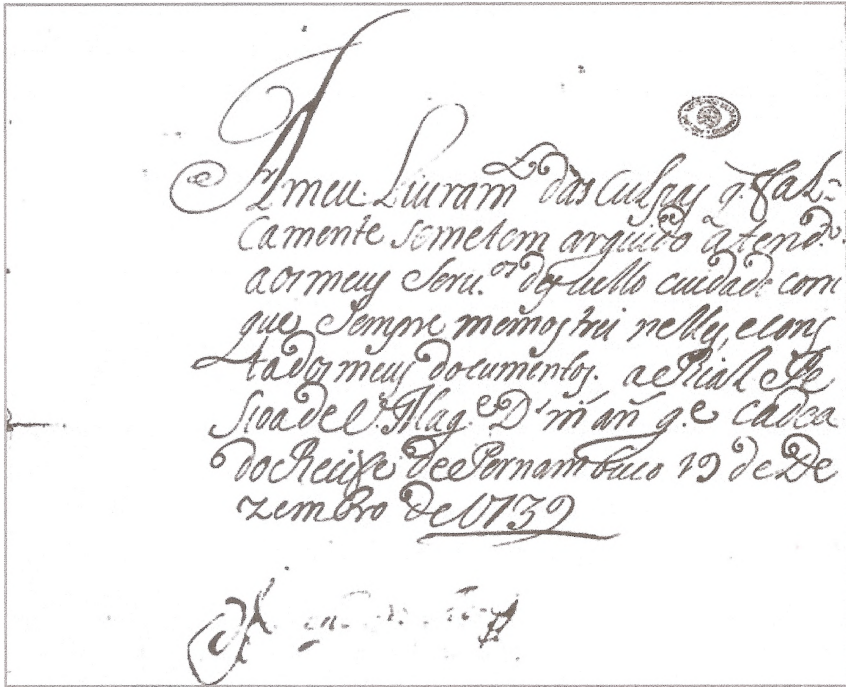 meu Liuram.to das Culpas q. fal=
camente semetem arguido atend.o
aos meus Seru.os dezuello cuidado com
que Sempre memostrei nelles, econs
tados meus documentos. a Rial Pe
ssoa de V. Mag.e D.s m. añ g.e cadea
do Recife de Pernambuco 19 de De
zembro de 1739